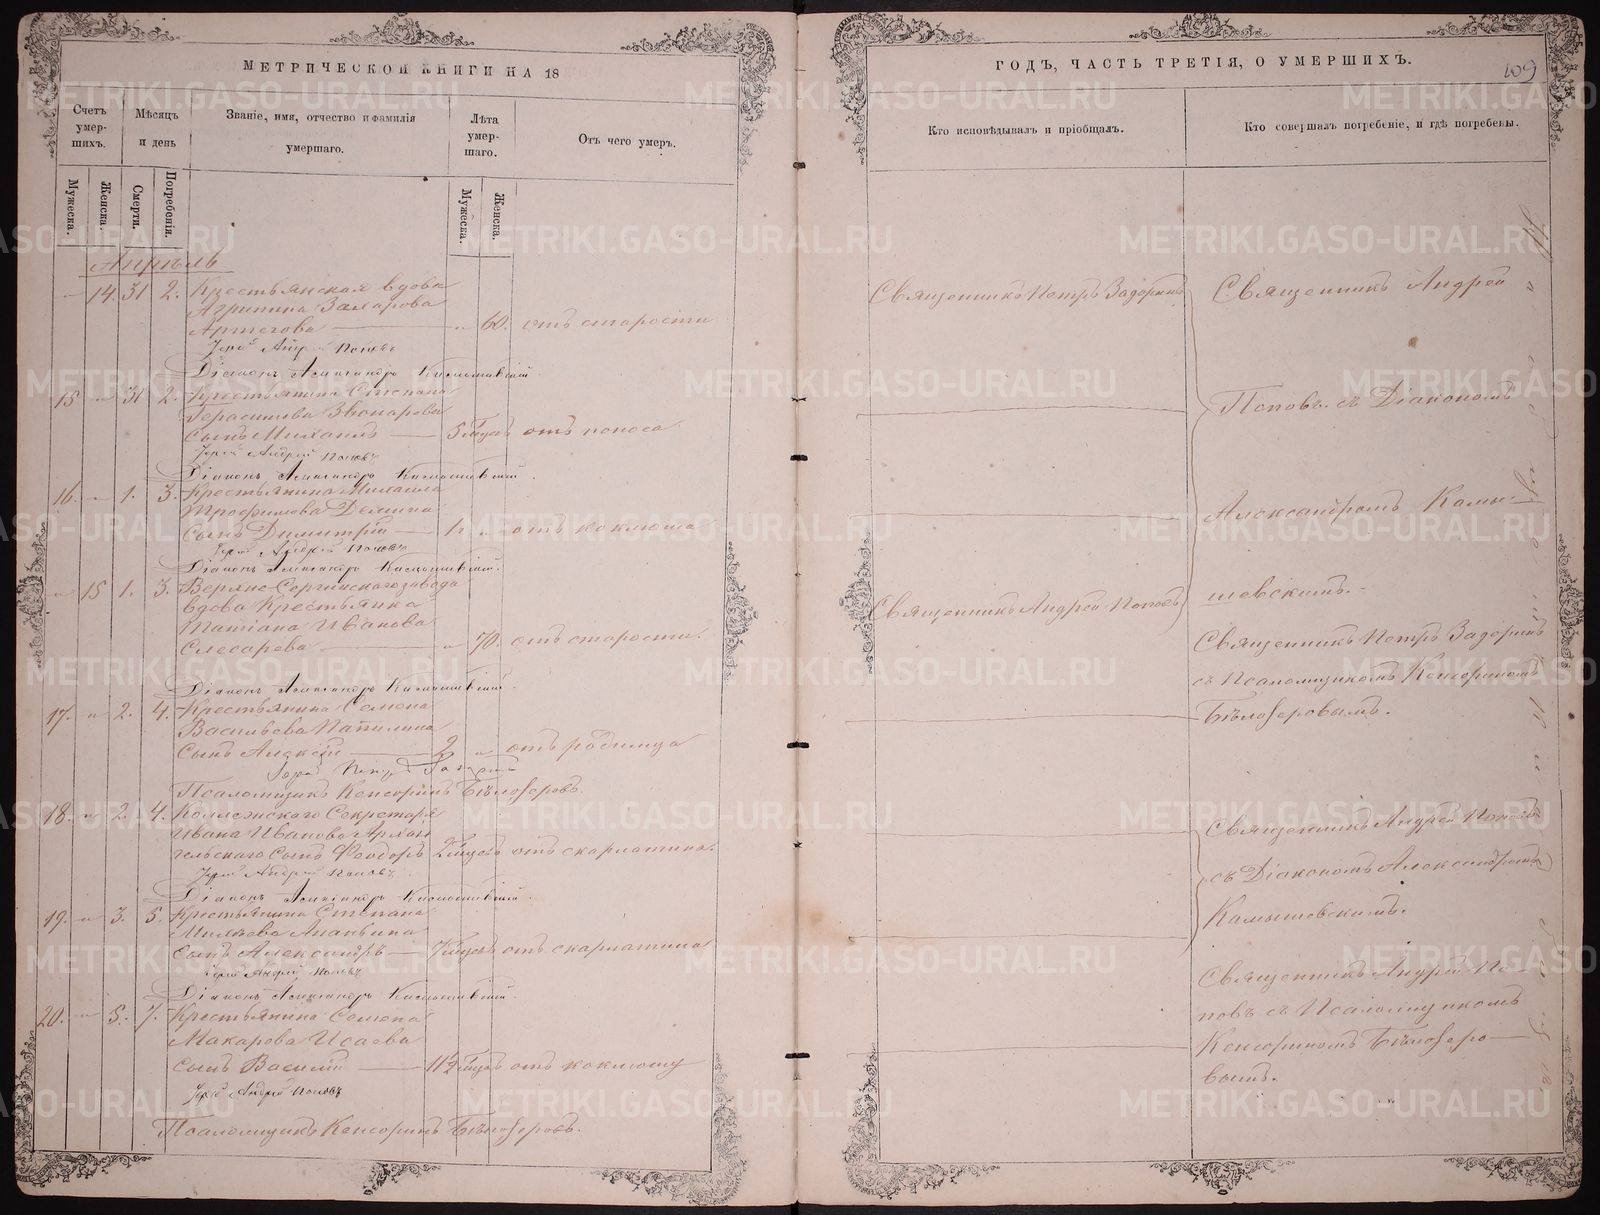 МЕТРИЧЕСКОЙ КНИГИ НА 18
Счетъ умер-шихъ.
Мѣсяцъ и день
Званіе, имя, отчество и фамилія умершаго.
Лѣта умер-шаго.
Отъ чего умеръ.
Мужеска.
Женска.
Смерти.
Погребенія.
Мужеска.
Женска.
Апрѣль
14. 31 2. Крестьянская вдова
Агрипина Захарова
60. отъ старости
Діаконъ Александръ Камышевскій.
15 31 2. Крестьянина Степана
Герасимова Звонарева
Сынъ Михаилъ 5 отъ поноса
Іерей Андрей Поповъ
Діаконъ Александръ Камышевскій.
16. 1. 3. Крестьянина Михаила
Трофимова Демина
сынъ Димитрій отъ коклюша
Іерей Андрей Поповъ
Діаконъ Александръ Камышевскій.
15 1. 3. Верхне-Сергинскаго завода
вдова Крестьянка
Татіана Иванова
Слесарева 70. отъ старости.
Діаконъ Александръ Камышевскій.
17. 2. 4. Крестьянина Семена
Васильева
Сынъ Алексѣй 2 отъ родимца
Псаломщикъ Кенсоринъ Бѣлозеровъ.
18. 2. 4. Коллежскаго Секретаря
Ивана Иванова Архан-
гельскаго Сынъ Феодоръ отъ скарлатины.
Іерей Андрей Поповъ.
Діаконъ Александръ Камышевскій.
19. 3. 5. Крестьянина Степана
Ананьина
сынъ Александръ отъ скарлатины
Іерей Андрей Поповъ
Діаконъ Александръ Камышевскій.
20. 5. 7. Крестьянина Семена
Макарова Исаева
сынъ Василій отъ коклюшу
Іерей Андрей Поповъ
Псаломщикъ Кенсоринъ Бѣлозеровъ.
ГОДЪ, ЧАСТЬ ТРЕТІЯ, О УМЕРШИХЪ.
109
Кто исповѣдывалъ и пріобщалъ.
Кто совершалъ погребеніе, и гдѣ погребены.
Священникъ Петръ Задоринъ
Священникъ Андрей Поповъ
Священникъ Андрей
Поповъ. съ Діакономъ
Александромъ Камы-
шевскимъ.
Священникъ Петръ Задоринъ
съ Псаломщикомъ Кенсориномъ
Бѣлозеровымъ.
Священникъ Андрей Поповъ
съ Діакономъ Александромъ
Камышевскимъ.
Священникъ Андрей По-
повъ съ Псаломщикомъ
Кенсориномъ Бѣлозеро-
вымъ.
METRIKI.GASO-URAL.RU